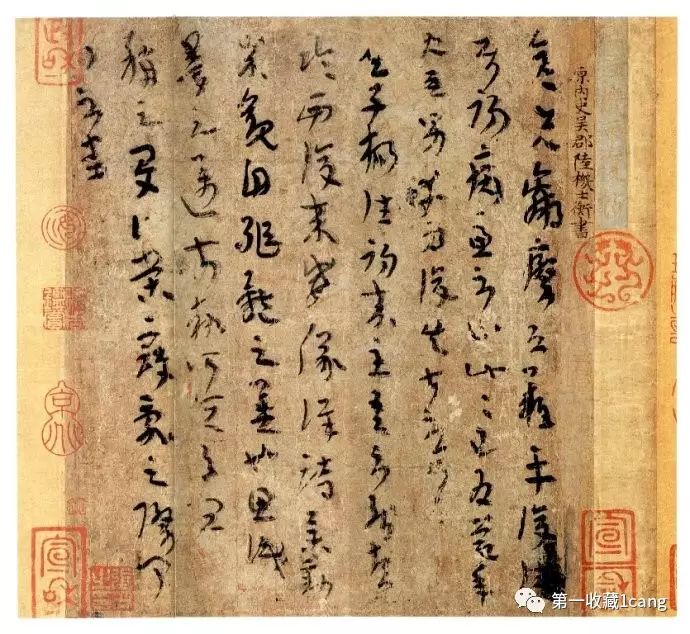 晉內史吳郡陸機士衡書
彦先羸瘵恐難平復往属
初病慮不止此此已為慶承
使唯男幸為復失前憂耳
吳子楊往初來主吾不能盡
臨西復來威儀詳跱舉動
成觀自軀體之美也思識
量之邁前執所恒有宜
稱之夏伯榮寇亂之際聞
問不悉
宣和
第一收藏1cang